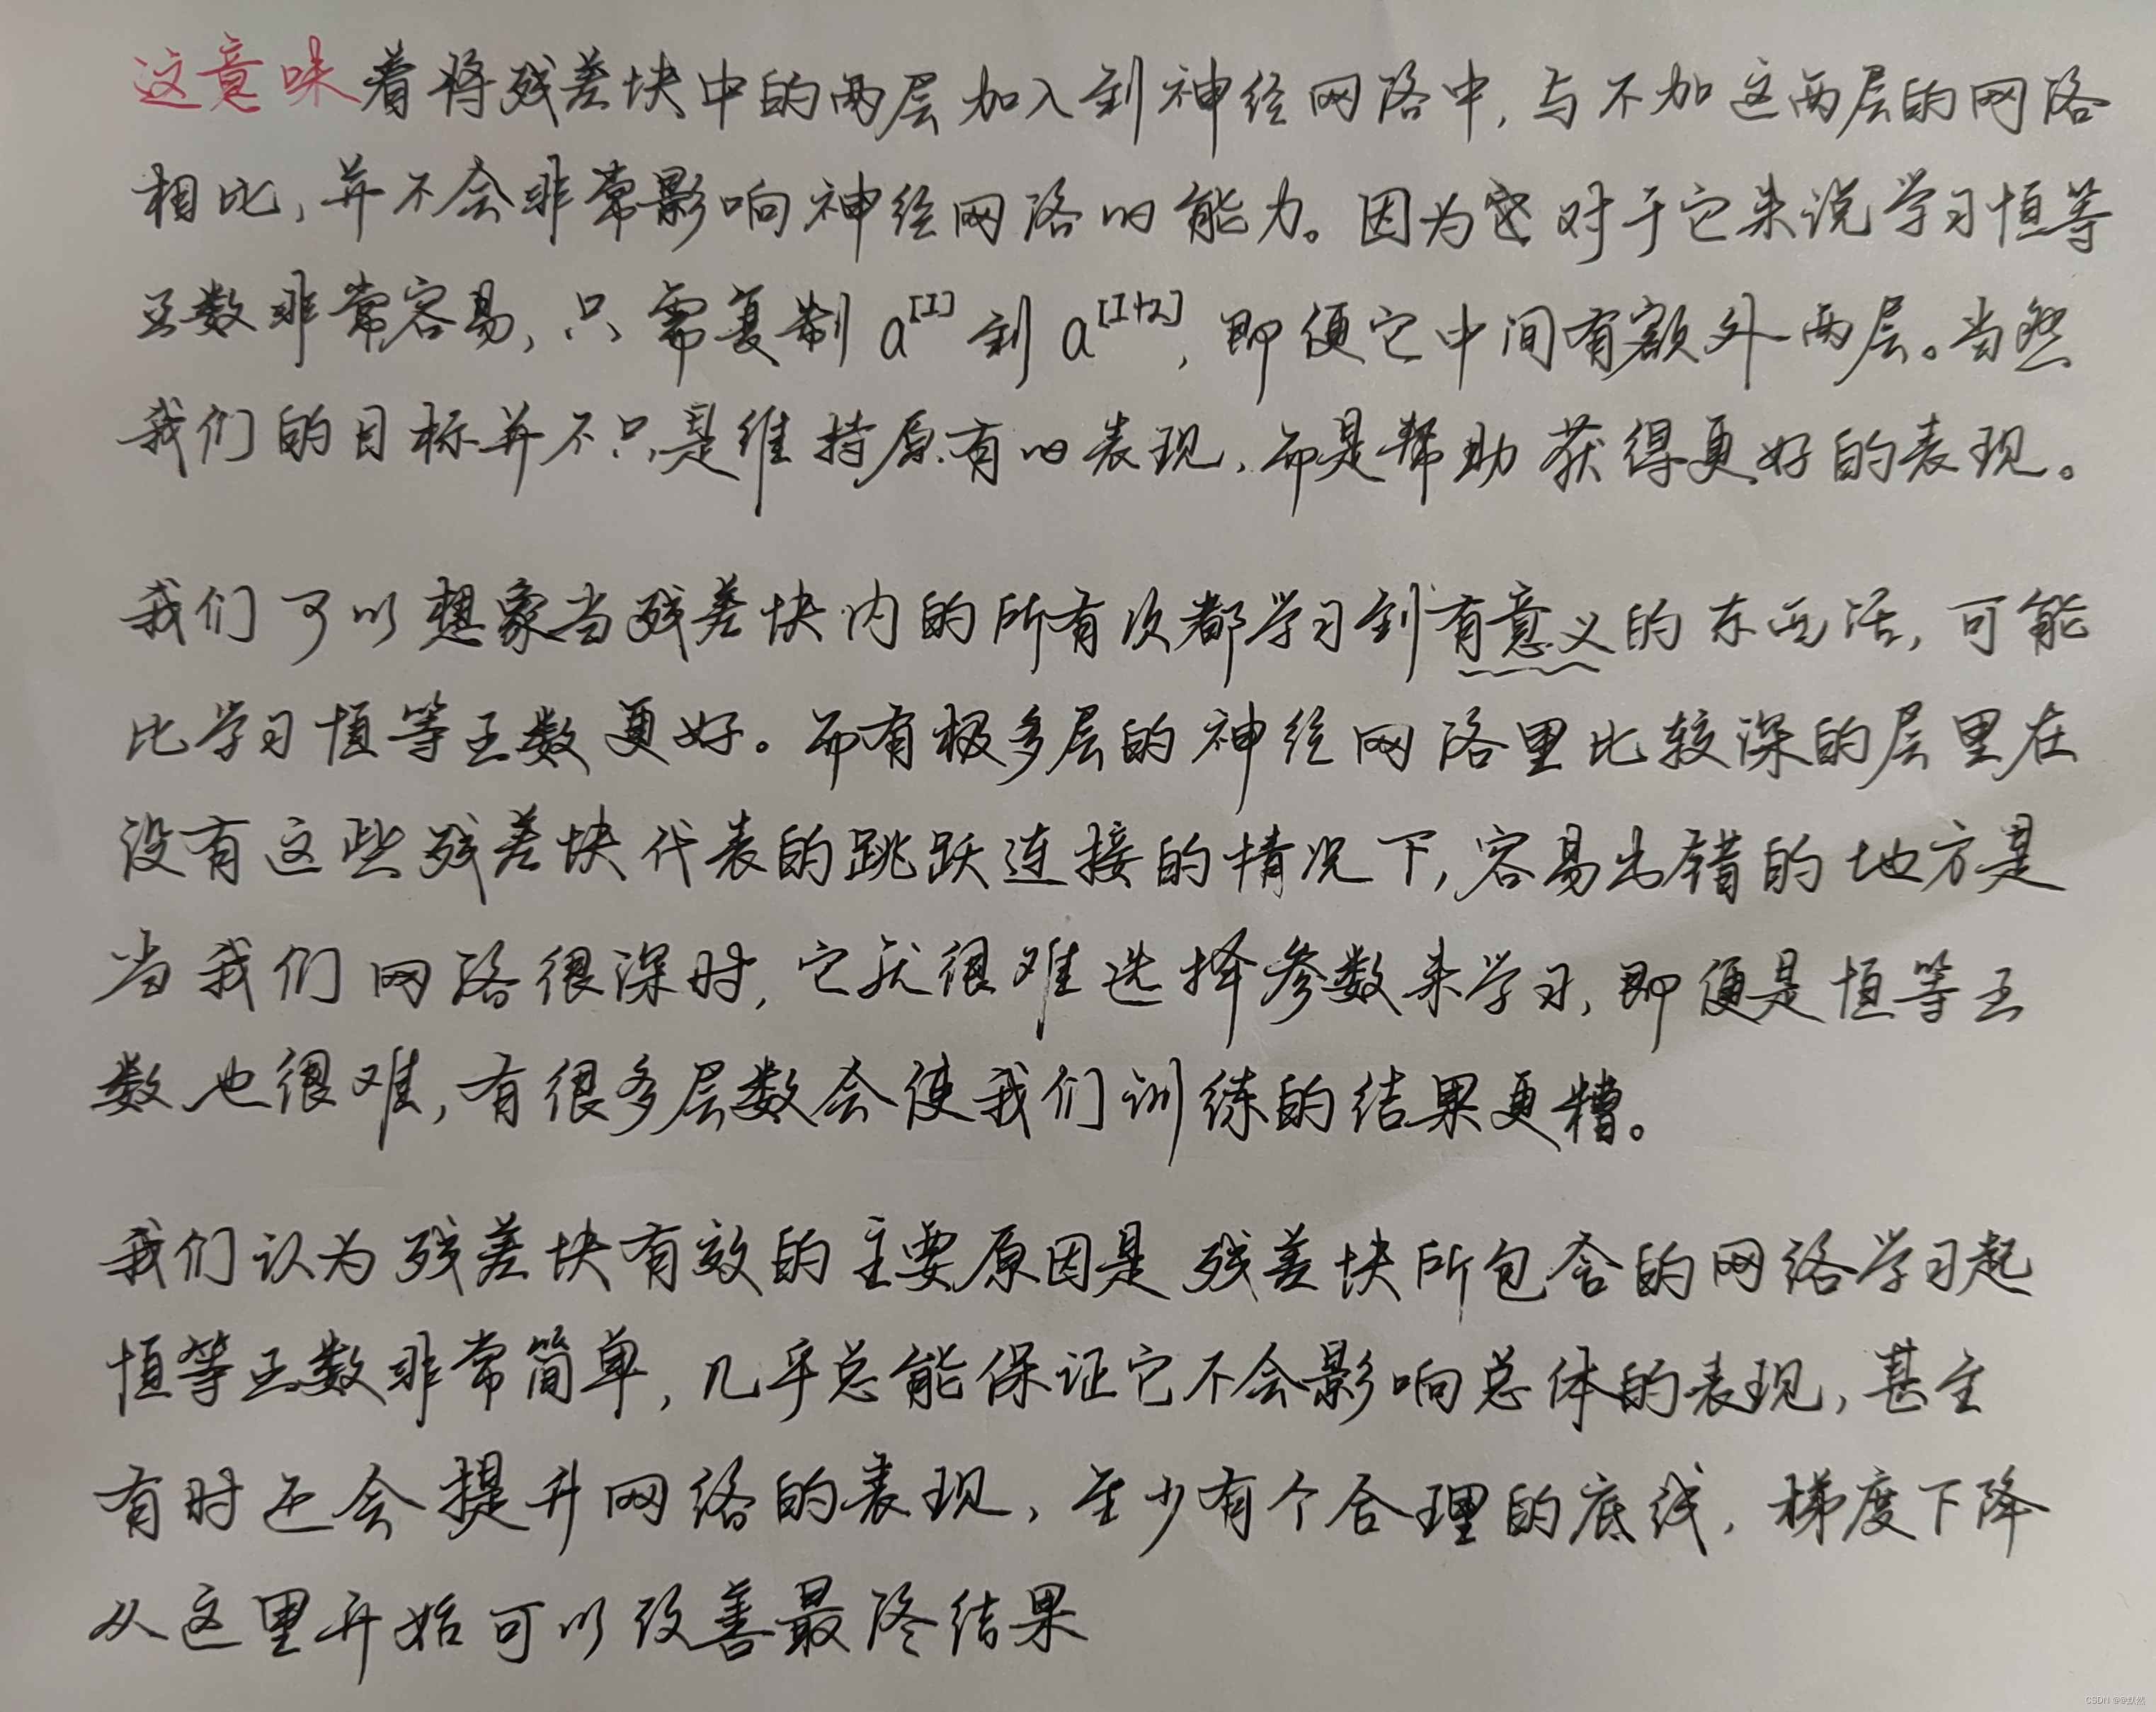 这意味着将残差块中的两层加入到神经网络中,与不加这两层的网络
相比,并不会非常影响神经网络的能力。因为它对于它来说学习恒等
函数非常容易,只需复制a^[l]到a^[l+2],即便它中间有额外两层。当然
我们的目标并不只是维持原有的表现,而是帮助获得更好的表现。
我们可以想象当残差块内的所有次都学习到有意义的东西话,可能
比学习恒等函数更好。而有极多层的神经网络里比较深的层里在
没有这些残差块代表的跳跃连接的情况下,容易出错的地方是
当我们网络很深时,它就很难选择参数来学习,即便是恒等函
数也很难,有很多层数会使我们训练的结果更糟。
我们认为残差块有效的主要原因是残差块所包含的网络学习起
恒等函数非常简单,几乎总能保证它不会影响总体的表现,甚至
有时还会提升网络的表现,至少有个合理的底线,梯度下降
从这里开始可以改善最终结果
CSDN @@默然